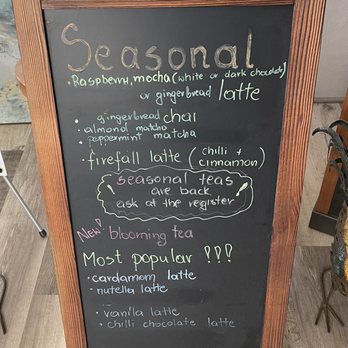 Seasonal
• Raspberry, mocha (white or dark chocolate)
or gingerbread latte
• gingerbread chai
• almond matcha
• peppermint matcha
• firefall latte (chilli + cinnamon)
seasonal teas
are back
ask at the register
New! blooming tea
Most popular !!!
• cardamom latte
• nutella latte
• vanilla latte
• chilli chocolate latte